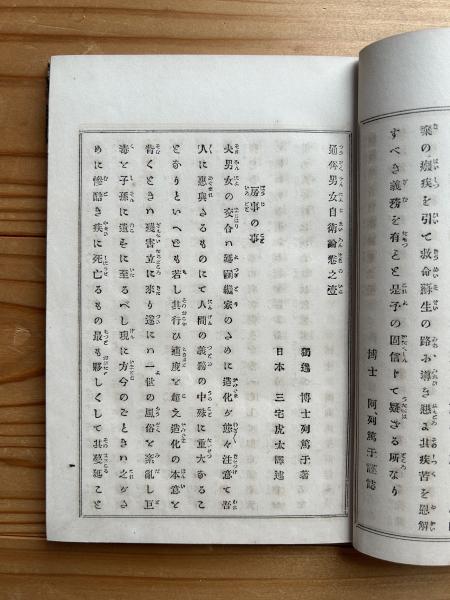 癈疾を引て救命蘇生の路お導き懇よ其疾苦を恩解
すべき義務を有えと是予の固信して疑ざる所なり
博士 阿列篤于謹誌
通俗男女自衛論巻之壹
獨逸 博士列篤于著
日本 三宅虎太譯述
房事の事
夫男女の交合ハ孫嗣繼家のために造化が態々注意て吾
人に惠與さるものにて人間の義務の中殊に重大なるこ
となりといへども若し其行ひ適度を超え造化の本意を
背くときハ殘害立どころに來り遂にハ一世の風俗を紊亂し巨
毒を子孫に遺すに至るべし現に方今のごときハ之がた
めに慘酷き疾に死亡るもの最も夥しくして其蔓延こと